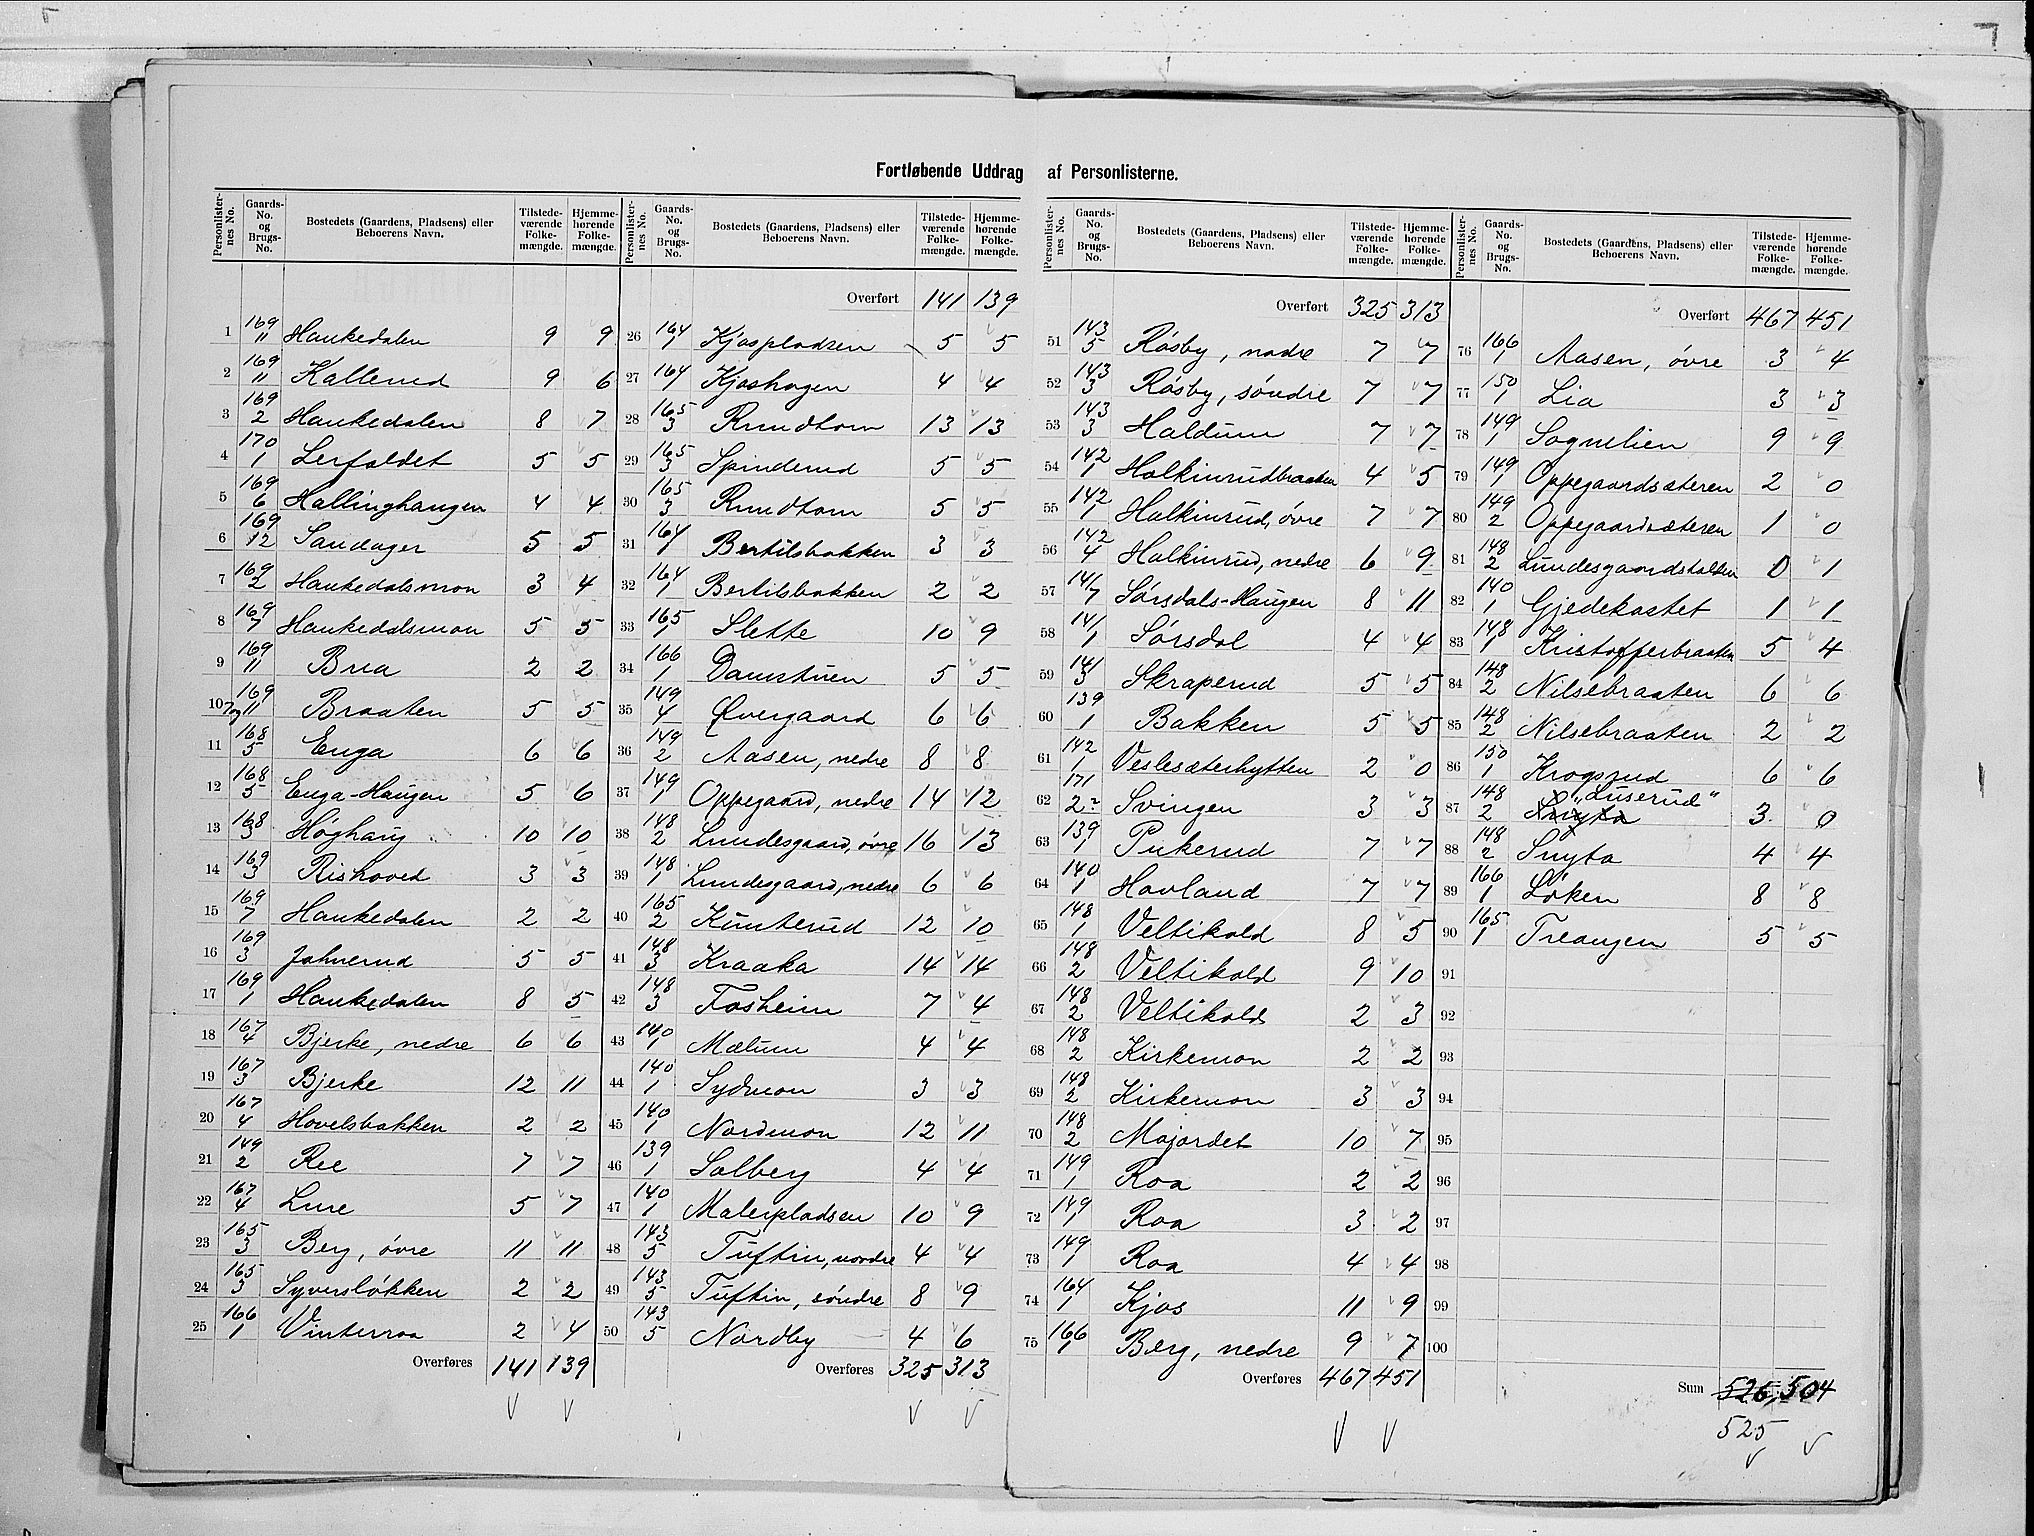 Fortløbende Uddrag af Personlisterne.
Personlister-nes No. | Gaards-No. og Brugs-No. | Bostedets (Gaardens, Pladsens) eller Beboerens Navn. | Tilstede-værende Folke-mængde. | Hjemme-hørende Folke-mængde.
1 169/11 Haukedalen 9 9
2 169/11 Kallerud 9 6
3 169/2 Haukedalen 8 7
4 170/1 Lerfaldet 5 5
5 169/6 Hallinghaugen 4 4
6 169/12 Sandager 5 5
7 169/2 Haukedalsmon 3 4
8 169/7 Haukedalsmon 5 5
9 169/11 Brua 2 2
10 169/11 Braaten 5 5
11 168/5 Enga 6 6
12 168/5 Enga-Haugen 5 6
13 168/3 Høghaug 10 10
14 169/3 Rishoved 3 3
15 169/7 Haukedalen 2 2
16 169/3 Johnerud 5 5
17 169/1 Haukedalen 8 5
18 167/4 Bjerke, nedre 6 6
19 167/3 Bjerke 12 11
20 167/4 Hovelsbakken 2 2
21 149/2 Ree 7 7
22 167/4 Lure 5 7
23 165/3 Berg, øvre 11 11
24 165/3 Syversløkken 2 2
25 166/1 Vinterroa 2 4
Overføres 141 139
Personlister-nes No. | Gaards-No. og Brugs-No. | Bostedets (Gaardens, Pladsens) eller Beboerens Navn. | Tilstede-værende Folke-mængde. | Hjemme-hørende Folke-mængde.
Overført 141 139
26 164/1 Kjospladsen 5 5
27 164/1 Kjoshagen 4 4
28 165/3 Rundtom 13 13
29 165/3 Spinderud 5 5
30 165/3 Rundtom 5 5
31 164/1 Bertilsbakken 3 3
32 164/1 Bertilsbakken 2 2
33 165/1 Slette 10 9
34 166/1 Damstuen 5 5
35 149/4 Øvergaard 6 6
36 149/2 Aasen, nedre 8 8
37 149/1 Oppegaard, nedre 14 12
38 148/2 Lundesgaard, øvre 16 13
39 148/1 Lundesgaard, nedre 6 6
40 165/2 Kunterud 12 10
41 148/3 Kraaka 14 14
42 148/3 Fosheim 7 4
43 140/1 Mælum 4 4
44 140/1 Sydmon 3 3
45 140/1 Nordmon 12 11
46 139/1 Solberg 4 4
47 140/1 Malerpladsen 10 9
48 143/5 Tuftin, nordre 4 4
49 143/5 Tuftin, søndre 8 9
50 143/5 Nordby 4 6
Overføres 325 313
Personlister-nes No. | Gaards-No. og Brugs-No. | Bostedets (Gaardens, Pladsens) eller Beboerens Navn. | Tilstede-værende Folke-mængde. | Hjemme-hørende Folke-mængde.
Overført 325 313
51 143/5 Røsby, nodre 7 7
52 143/3 Røsby, søndre 7 7
53 143/3 Haldum 7 7
54 142/1 Halkinrudbraaten 4 5
55 142/1 Halkinrud, øvre 7 7
56 142/4 Halkinrud, nedre 6 9
57 141/7 Sørsdals-Haugen 8 11
58 141/1 Sørsdal 4 4
59 141/3 Skraperud 5 5
60 139/1 Bakken 5 5
61 142/1 Veslesæterhytten 2 0
62 171/2 Svingen 3 3
63 139/1 Pukerud 7 7
64 140/1 Hovland 7 7
65 148/1 Veltikold 8 5
66 148/2 Veltikold 9 10
67 148/2 Veltikold 2 3
68 148/2 Kirkemon 2 2
69 148/2 Kirkemon 3 3
70 148/2 Mojordet 10 7
71 149/1 Roa 2 2
72 149/1 Roa 3 2
73 149/1 Roa 4 4
74 164/1 Kjos 11 9
75 166/1 Berg, nedre 9 7
Overføres 467 451
Personlister-nes No. | Gaards-No. og Brugs-No. | Bostedets (Gaardens, Pladsens) eller Beboerens Navn. | Tilstede-værende Folke-mængde. | Hjemme-hørende Folke-mængde.
Overført 467 451
76 166/1 Aasen, øvre 3 4
77 150/1 Lia 3 3
78 149/1 Sognelien 9 9
79 149/1 Oppegaardsæteren 2 0
80 149/2 Oppegaardsæteren 1 0
81 148/2 Lundesgaardstallen 0 1
82 140/1 Gjedekastet 1 1
83 148/1 Kristofferbraaten 5 4
84 148/2 Nilsebraaten 6 6
85 148/2 Nilsebraaten 2 2
86 150/1 Krogsrud 6 6
87 148/2 "Luserud" 3 0
88 148/2 Snyta 4 4
89 166/1 Løken 8 8
90 165/1 Treangen 5 5
91
92
93
94
95
96
97
98
99
100
Sum 526, 504
525